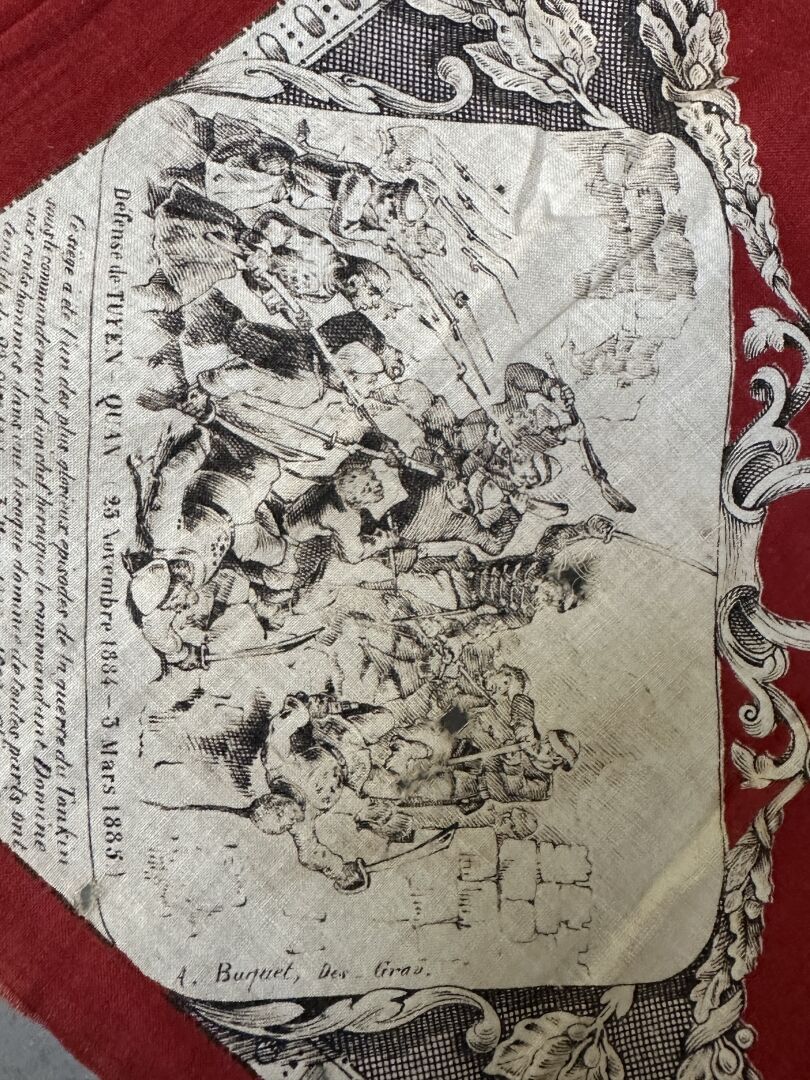 A. Buquet, Des - Grav.
Défense de TUYEN - QUAN 23 Novembre 1884 - 3 Mars 1885)
Ce siège a été l'un des plus glorieux épisodes de la guerre du Tonkin
sous le commandement d'un chef héroïque le commandant Dominé
six cents hommes dans une bicoque dominée de toutes parts ont